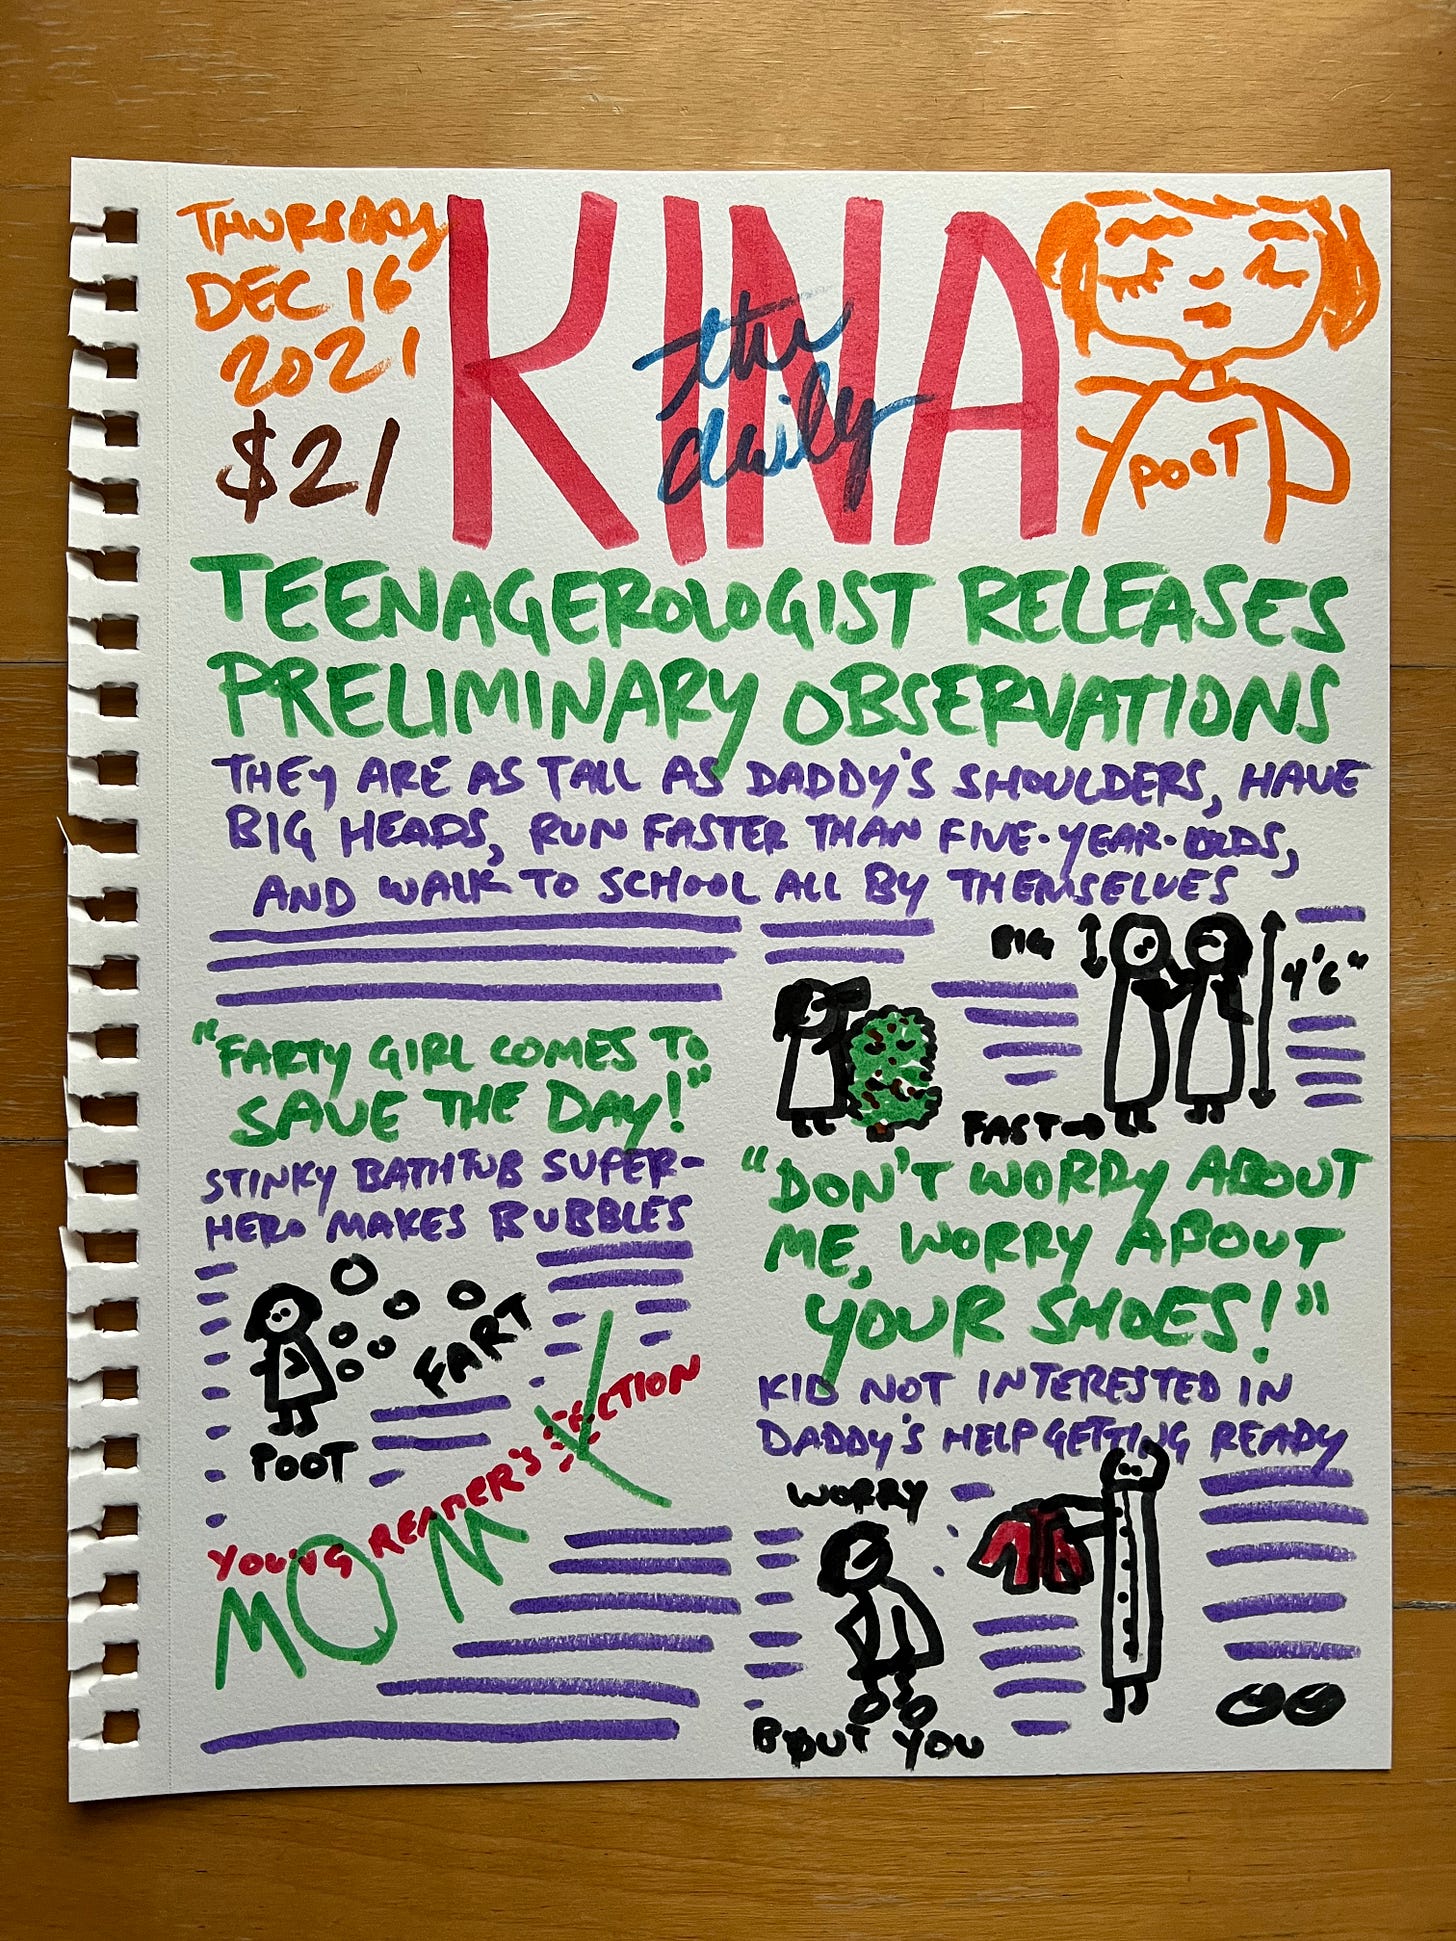 THURSDAY
DEC 16
2021
$21
KINA
the
daily
POOT
TEENAGEROLOGIST RELEASES
PRELIMINARY OBSERVATIONS
THEY ARE AS TALL AS DADDY'S SHOULDERS, HAVE
BIG HEADS, RUN FASTER THAN FIVE-YEAR-OLDS,
AND WALK TO SCHOOL ALL BY THEMSELVES
BIG
4'6"
FAST
"FARTY GIRL COMES TO
SAVE THE DAY!"
STINKY BATHTUB SUPER-
HERO MAKES BUBBLES
FART
POOT
YOUNG READER'S SECTION
MOMY
"DON'T WORRY ABOUT
ME, WORRY ABOUT
YOUR SHOES!"
KID NOT INTERESTED IN
DADDY'S HELP GETTING READY
WORRY
BOUT YOU